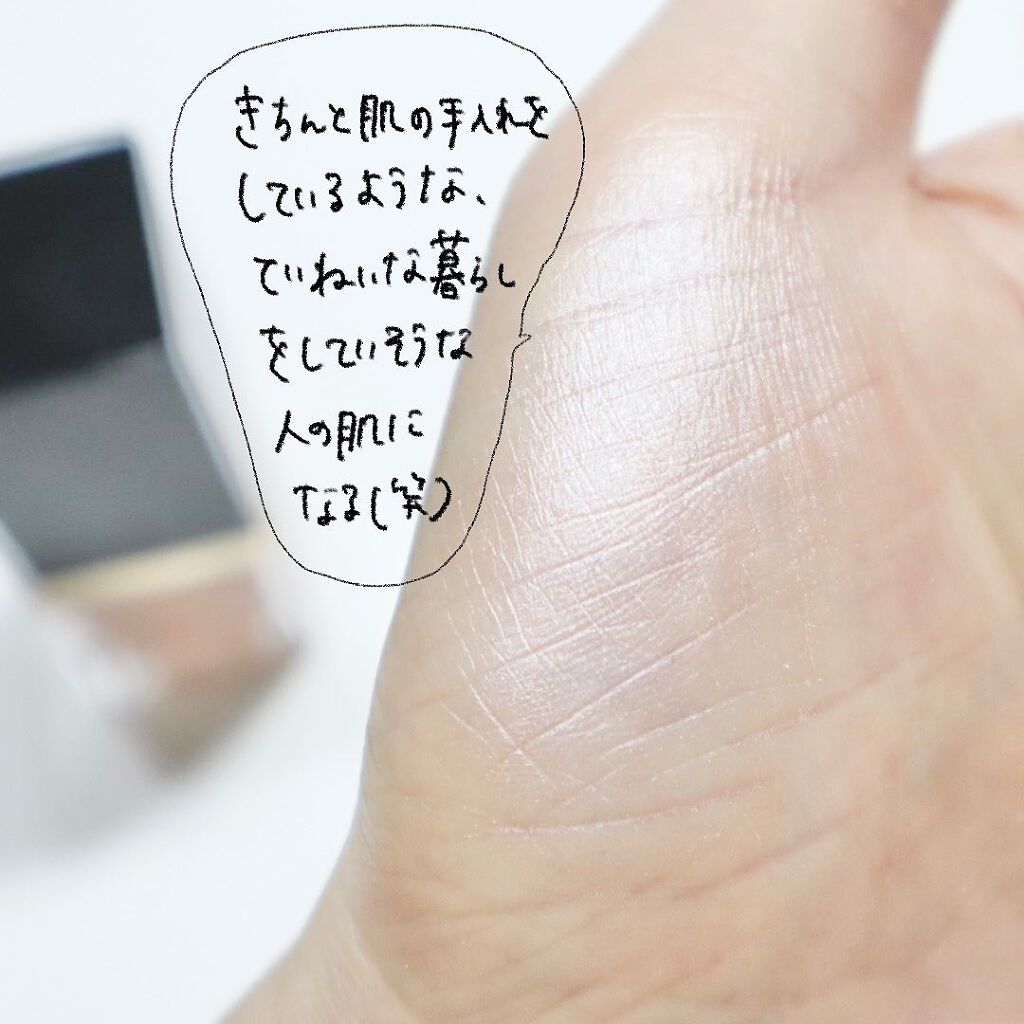 きちんと肌の手入れを
しているような、
ていねいな暮らし
をしていそうな
人の肌に
なる(笑)